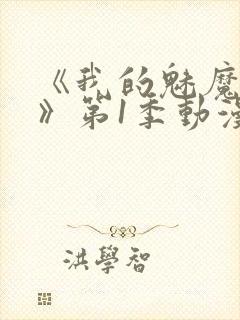 《我的魅魔
》第1季動漫
洪學智